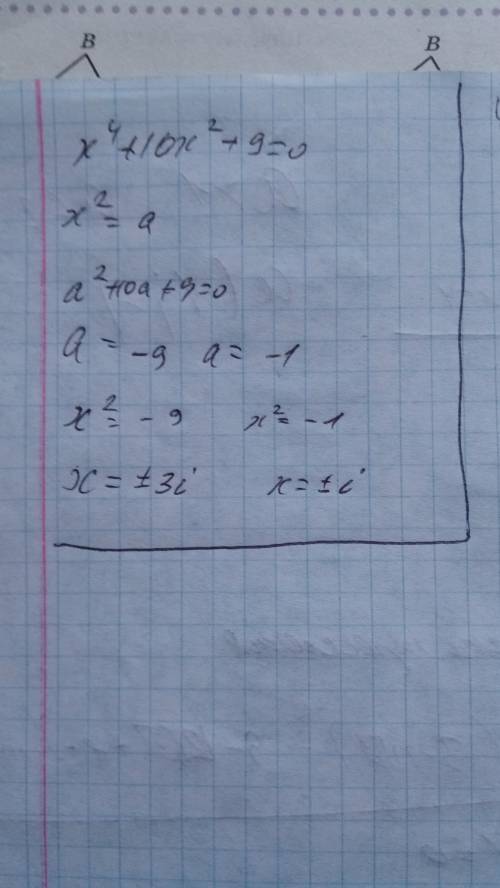 B B
x⁴+10x²+9=0
x²=a
a²+10a+9=0
a=-9 a=-1
x²=-9 x²=-1
x=±3i x=±i